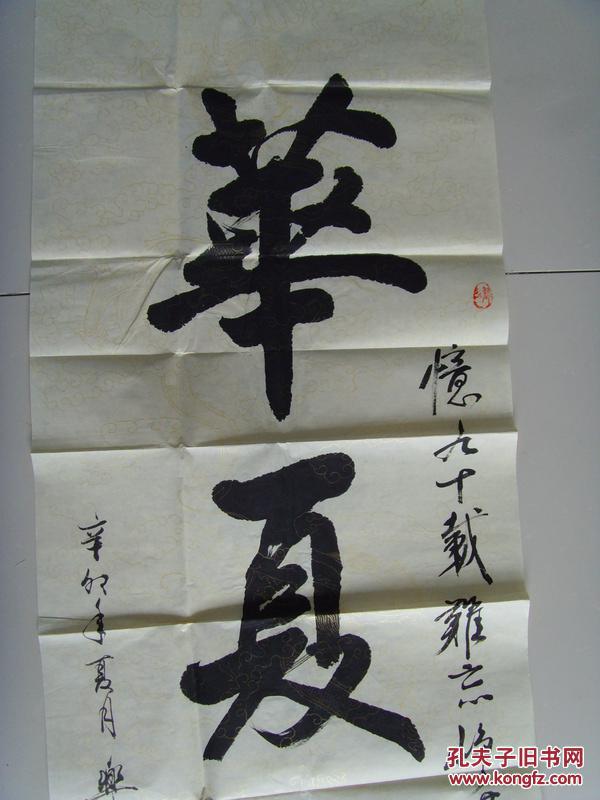 華夏
憶九十載難忘
辛卯年夏月
孔夫子旧书网
www.kongfz.com